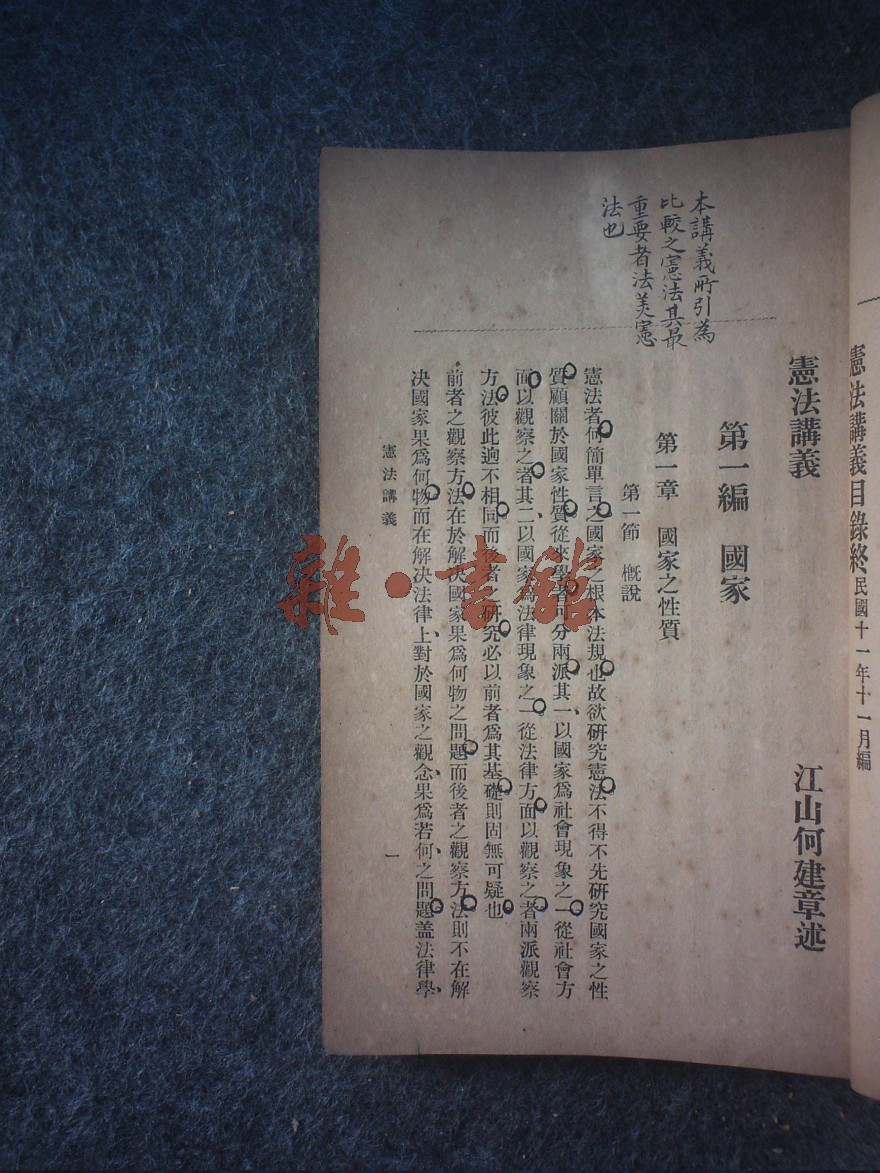 憲法講義目錄終 民國十一年十一月編
憲法講義
江山何建章述
本講義所引為
比較之憲法其最
重要者法美憲
法也
第一編 國家
第一章 國家之性質
第一節 概說
憲法者何簡單言之國家之根本法規也故欲研究憲法不得不先研究國家之性
質顧關於國家性質從來學者可分兩派其一以國家爲社會現象之一從社會方
面以觀察之者其二以國家爲法律現象之一從法律方面以觀察之者兩派觀察
方法彼此逈不相同而後者之研究必以前者爲其基礎則固無可疑也
前者之觀察方法在於解決國家果爲何物之問題而後者之觀察方法則不在解
決國家果爲何物而在解決法律上對於國家之觀念果爲若何之問題盖法律學
憲法講義
一
雜·書館